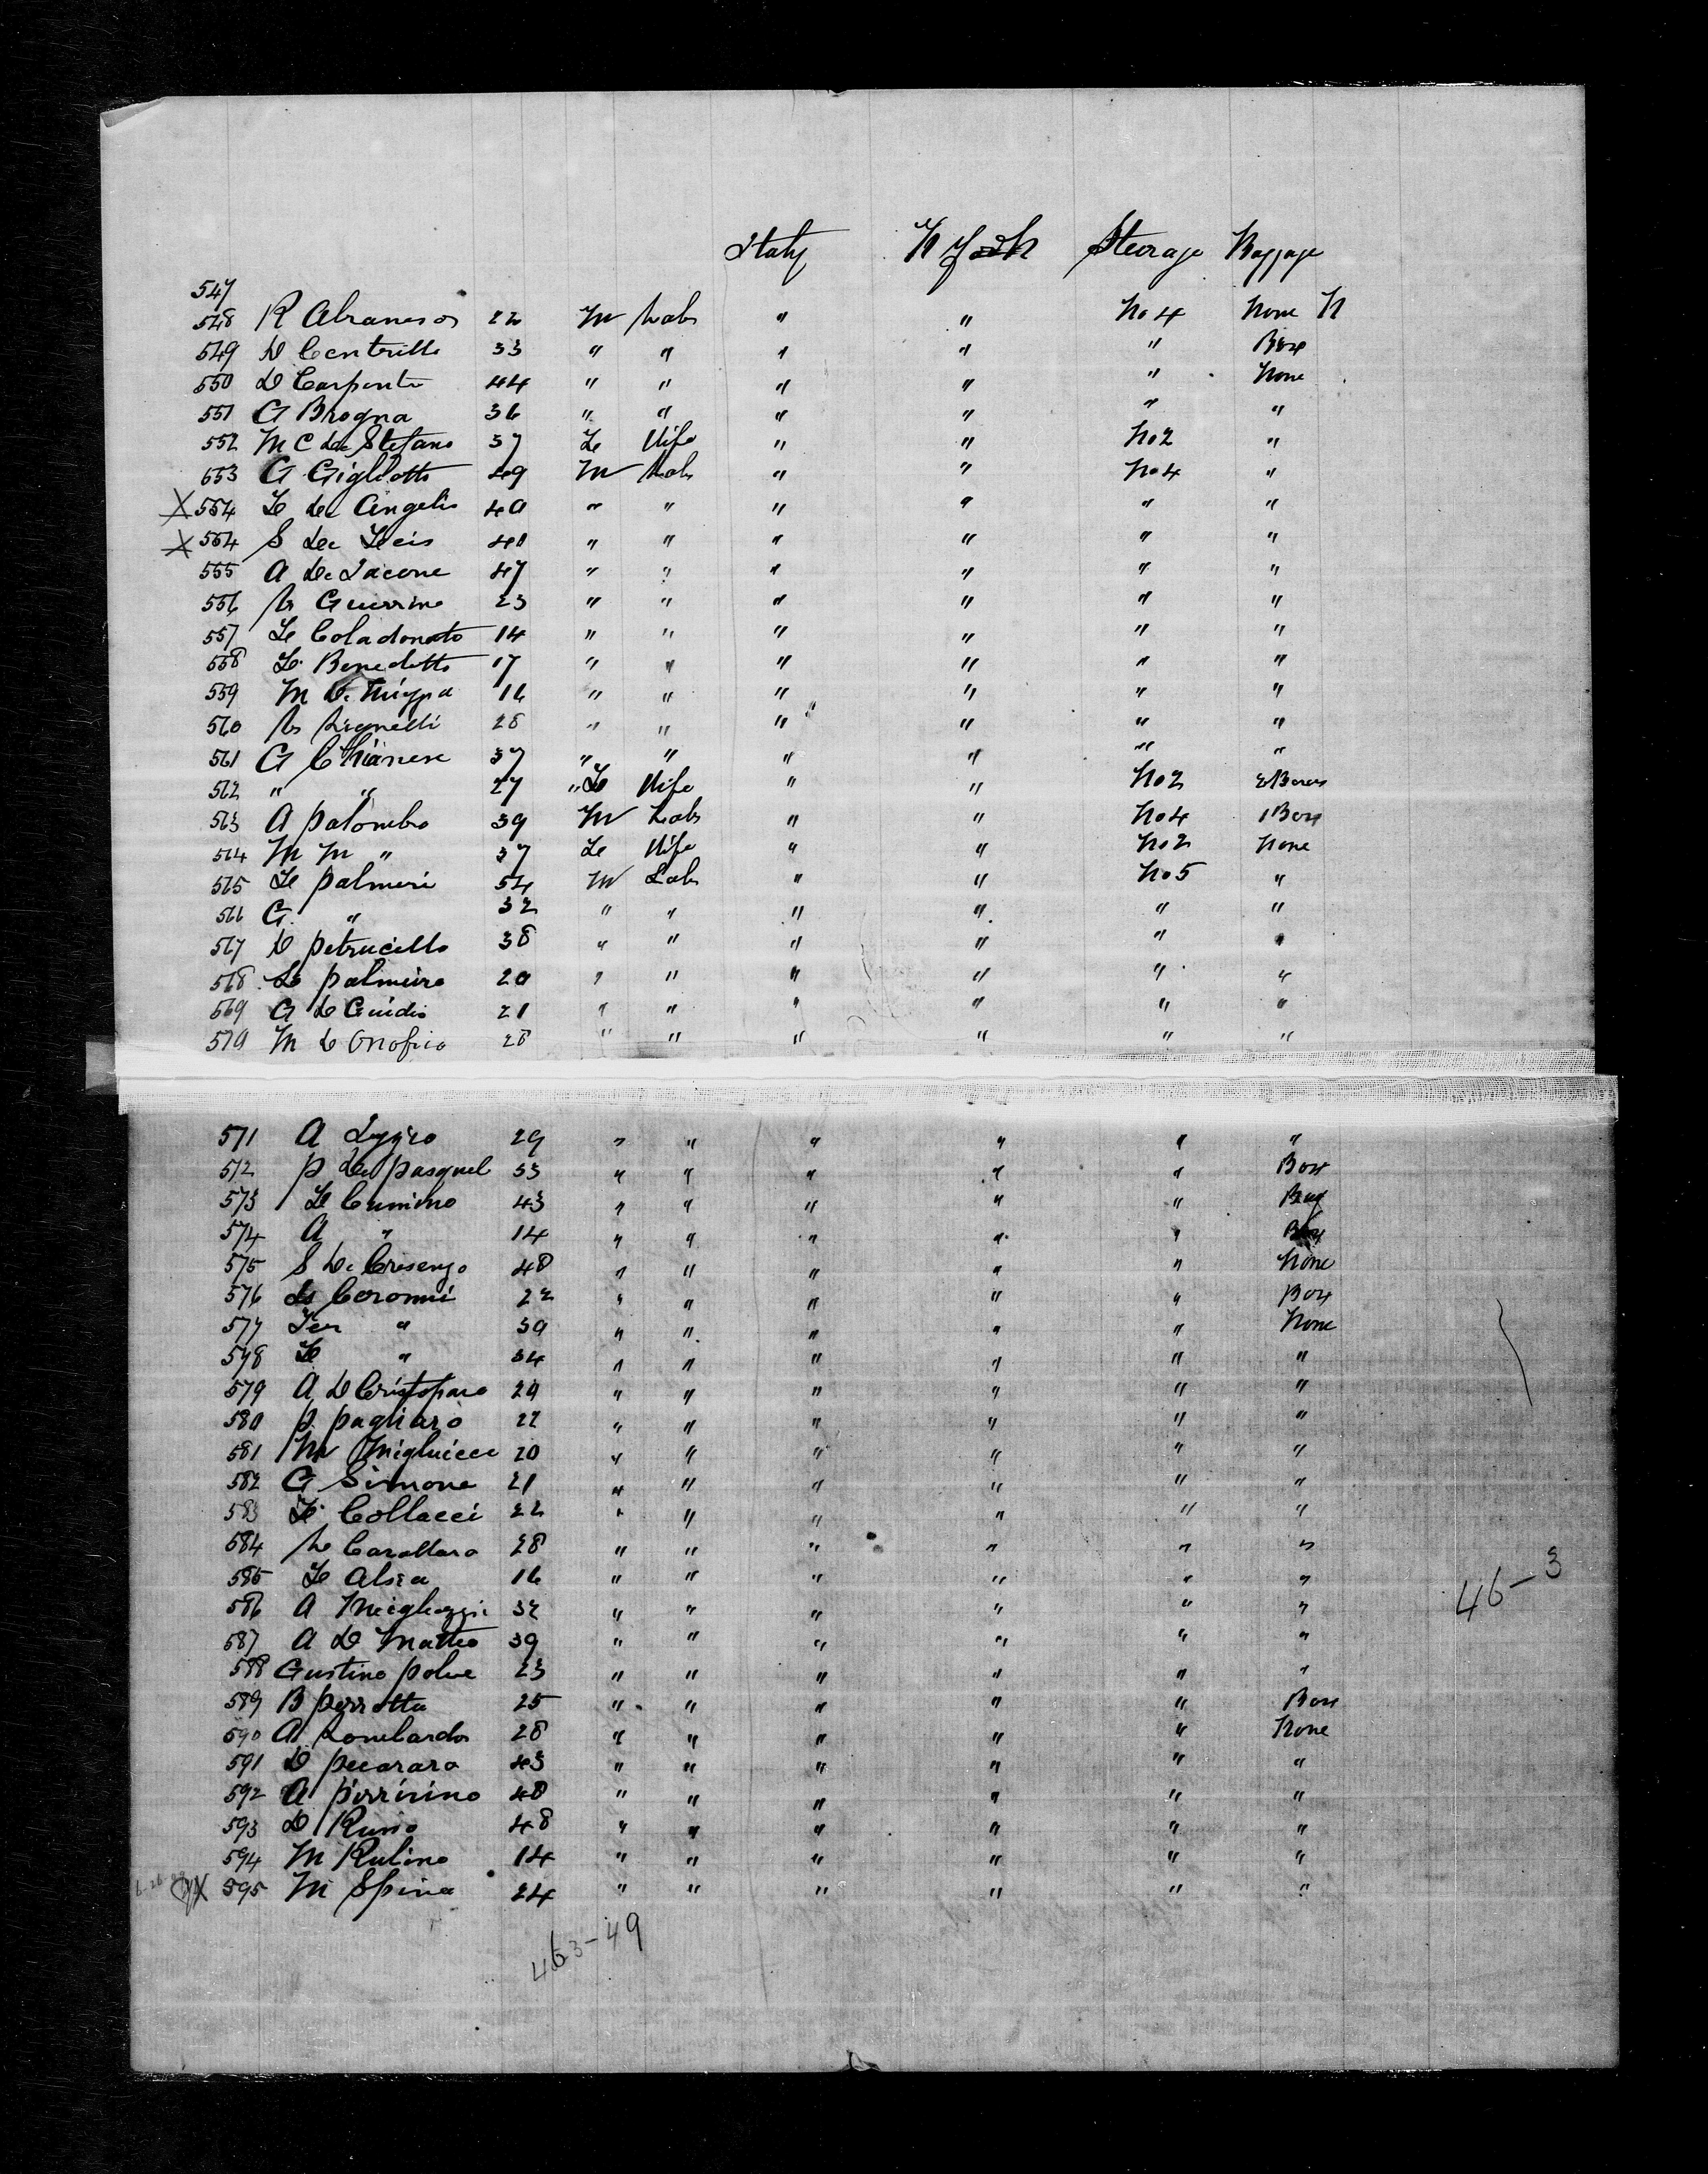 Italy N York Steerage Baggage
547
548 R 22 M Lab " " No 4 None N
549 D Centrillo 33 " " " " " Box
550 D Carpenta 44 " " " " " None
551 G Brogna 36 " " " " " "
552 M C de Stefano 37 Fe Wife " " No 2 "
553 G Gigliotti 49 M Lab " " No 4 "
X 554 Fe de Angelis 40 " " " " " "
X 554 S de 40 " " " " " "
555 A de Iacone 47 " " " " " "
556 Guerrino 23 " " " " " "
557 Fe Coladonato 14 " " " " " "
558 Fe Benedetto 17 " " " " " "
559 M 16 " " " " " "
560 28 " " " " " "
561 G Chianese 37 " " " " " "
562 " " 27 " Fe Wife " " No 2 2 Boxes
563 A palombo 39 M Lab " " No 4 1 Box
564 M M " 37 Fe Wife " " No 2 None
565 Fe palmeri 54 M Lab " " No 5 "
566 G. " 32 " " " " " "
567 D petrucello 38 " " " " " "
568 palmeiro 20 " " " " " "
569 G de Guidis 21 " " " " " "
570 M d Onofrio 28 " " " " " "
571 A 29 " " " " " "
572 p de pasquel 53 " " " " " Box
573 Fe Cumino 43 " " " " " Bag
574 A " 14 " " " " " Box
575 S De Cresenzo 48 " " " " " None
576 Ceromi 22 " " " " " Box
577 " 30 " " " " " None
578 Fe " 34 " " " " " "
579 A D Cristofaro 24 " " " " " "
580 p. pagliaro 22 " " " " " "
581 M Migluicce 20 " " " " " "
582 G Simone 21 " " " " " "
583 Fe Collacci 22 " " " " " "
584 28 " " " " " "
585 Fe Alsia 16 " " " " " "
586 A Migliozzi 32 " " " " " "
587 A D Matteo 39 " " " " " "
588 Gustino polve 23 " " " " " "
589 B perrotta 25 " " " " " Box
590 A Lombardo 28 " " " " " None
591 D pecararo 43 " " " " " "
592 A 48 " " " " " "
593 D 48 " " " " " "
594 M Rulino 14 " " " " " "
X 595 M Spina 24 " " " " " "
46-3
463-49